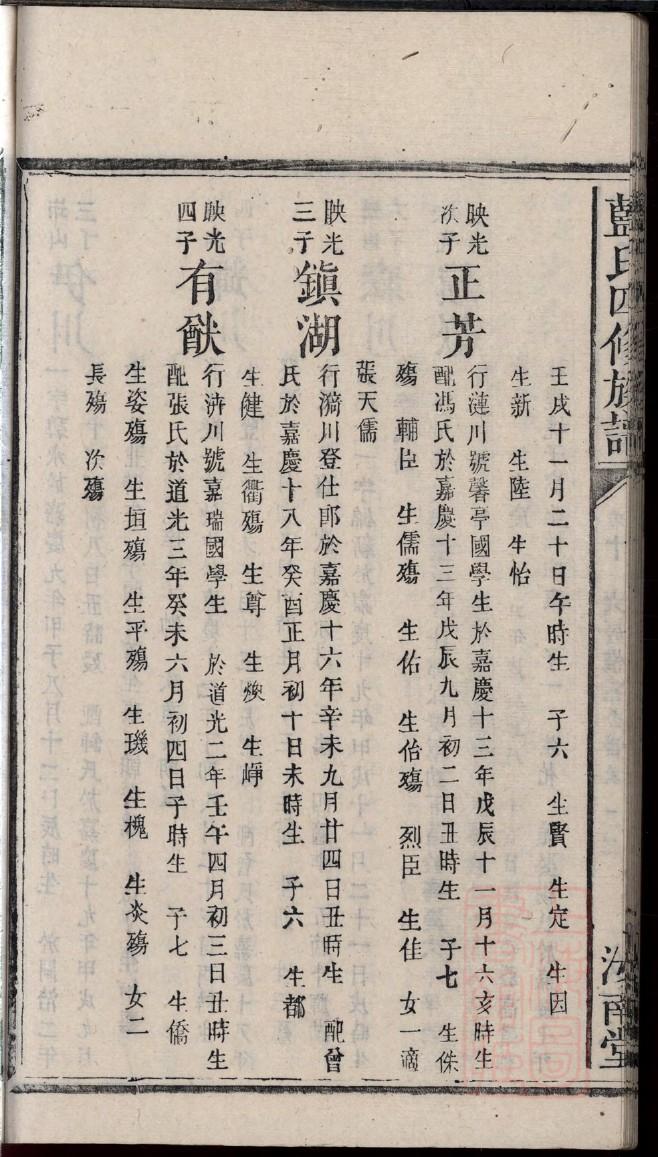 藍氏四修族譜
汝南堂
壬戌十一月二十日午時生 子六 生賢 生定 生因
生新 生陸 生怡
映光次子 正芳 行漣川號馨亭國學生於嘉慶十三年戊辰十一月十六亥時生
配馮氏於嘉慶十三年戊辰九月初二日丑時生 子七 生侏
殤 輔臣 生儒殤 生佑 生佁殤 烈臣 生佳 女一適
張天儒
映光三子 鎮湖 行漪川登仕郎於嘉慶十六年辛未九月廿四日丑時生 配曾
氏於嘉慶十八年癸酉正月初十日未時生 子六 生都
生健 生衢殤 生尊 生煥 生崢
映光四子 有猷 行濟川號嘉瑞國學生 於道光二年壬午四月初三日丑時生
配張氏於道光三年癸未六月初四日子時生 子七 生僑
生姿殤 生垣殤 生平殤 生璣 生槐 生炎殤 女二
長殤 次殤